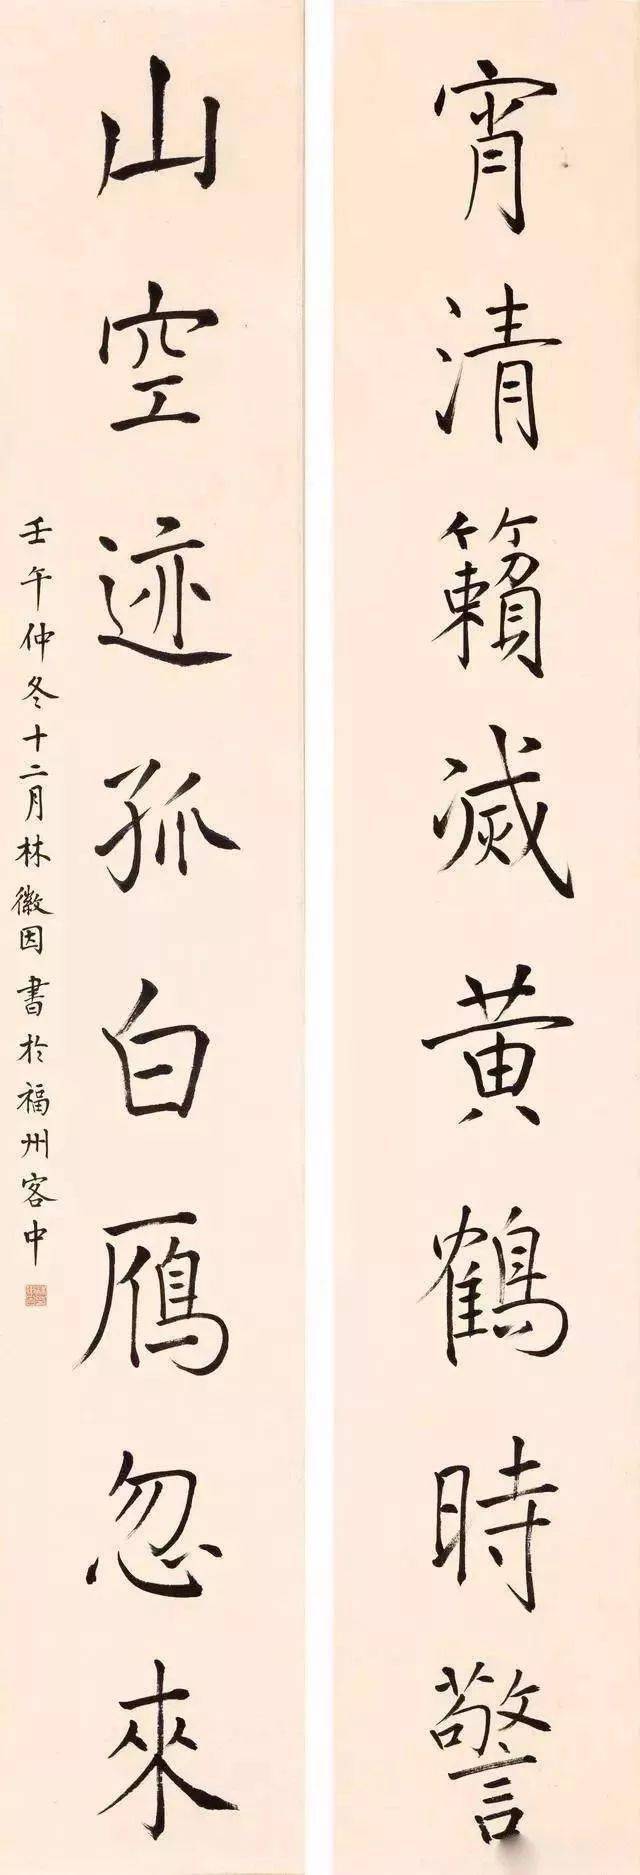 宵清籟滅黃鶴時警
山空迹孤白鴈忽來
壬午仲冬十二月林徽因書於福州客中